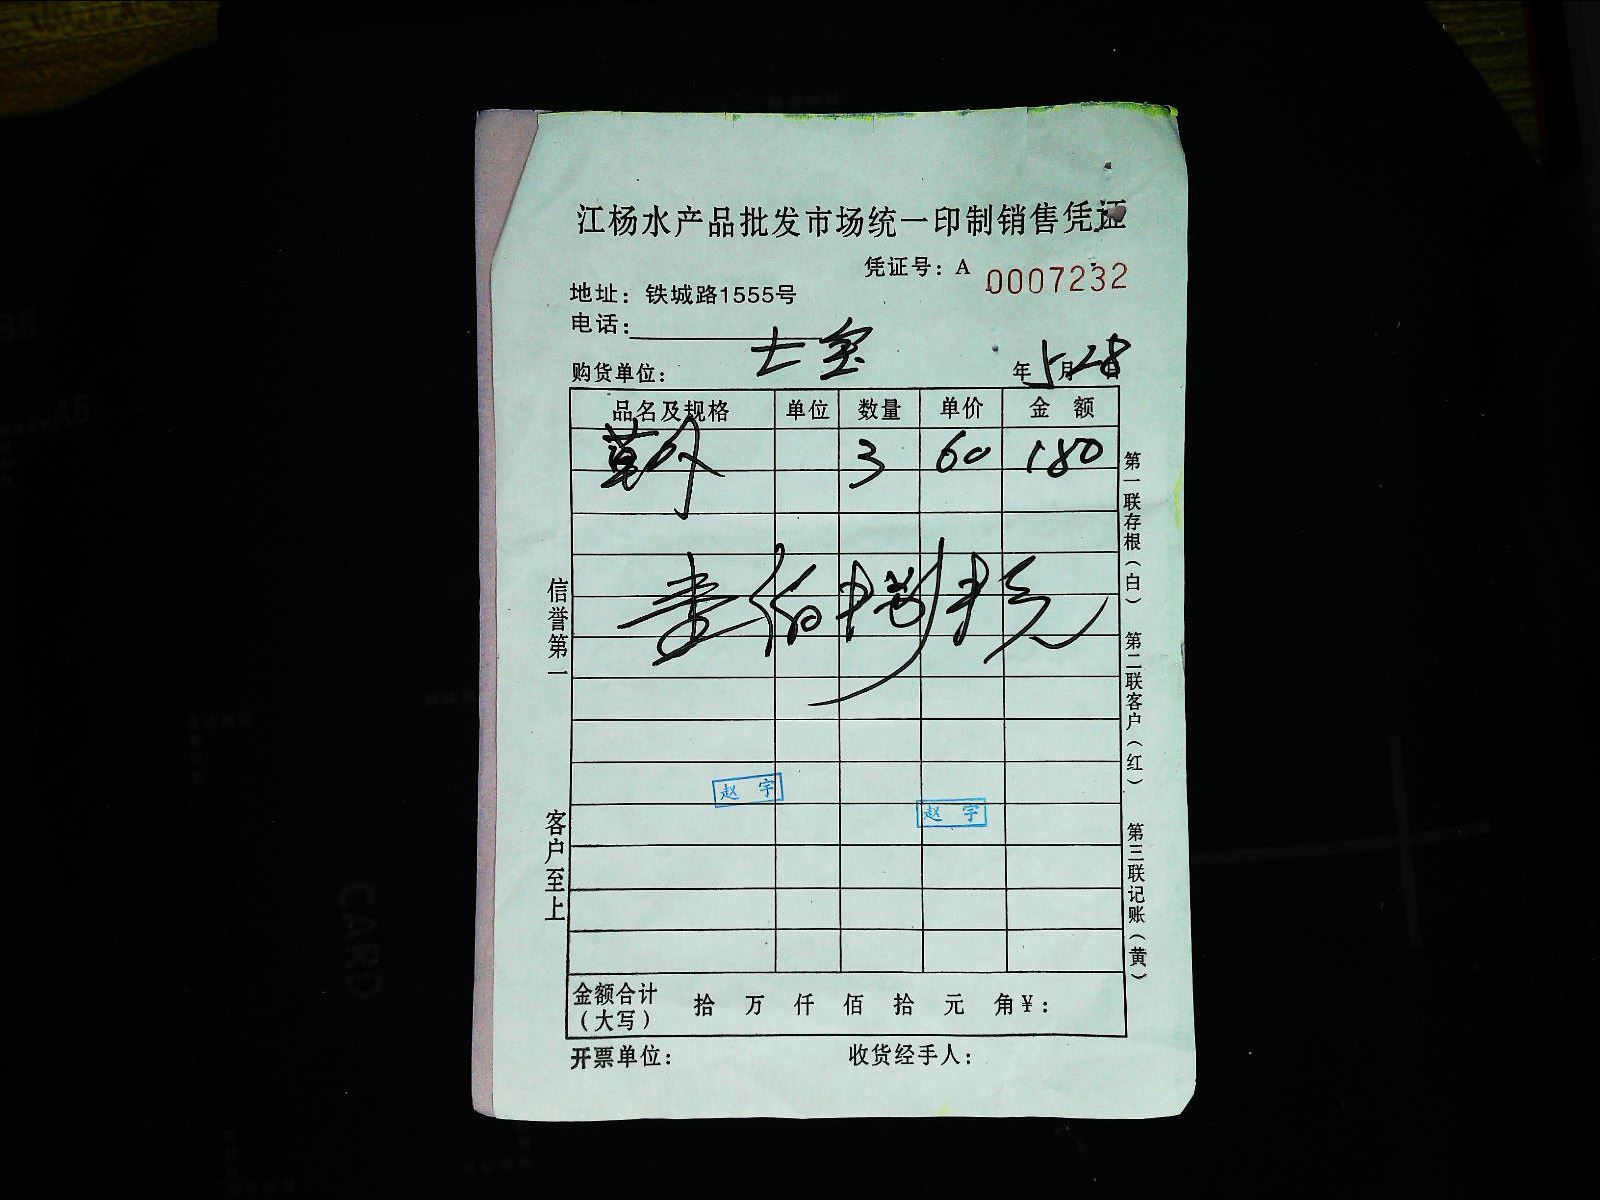 江杨水产品批发市场统一印制销售凭证
凭证号：A 0007232
地址：铁城路1555号
电话：
购货单位： 七宝 年5月28日
品名及规格 单位 数量 单价 金额
3 60 180
壹佰捌拾元
赵宇
赵宇
金额合计（大写） 拾 万 仟 佰 拾 元 角￥：
开票单位： 收货经手人：
信誉第一
客户至上
第一联存根（白）
第二联客户（红）
第三联记账（黄）
CARD
A5